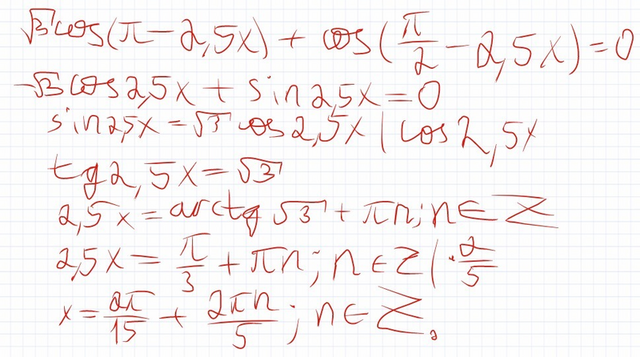 √3 cos(π − 2,5x) + cos(π/2 − 2,5x) = 0
−√3 cos 2,5x + sin 2,5x = 0
sin 2,5x = √3 cos 2,5x | cos 2,5x
tg 2,5x = √3
2,5x = arctg √3 + πn; n ∈ Z
2,5x = π/3 + πn; n ∈ Z | · 2/5
x = 2π/15 + 2πn/5; n ∈ Z.